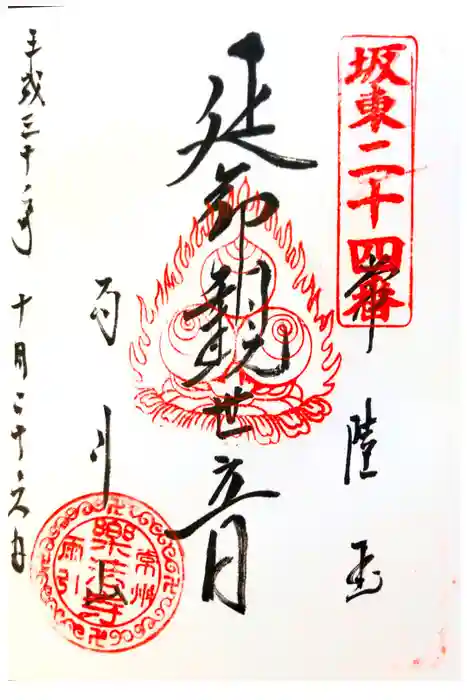 坂東二十四番
常陸国
延命観世音
雨引山
常州
樂法寺
雨引
平成三十年 十月二十六日